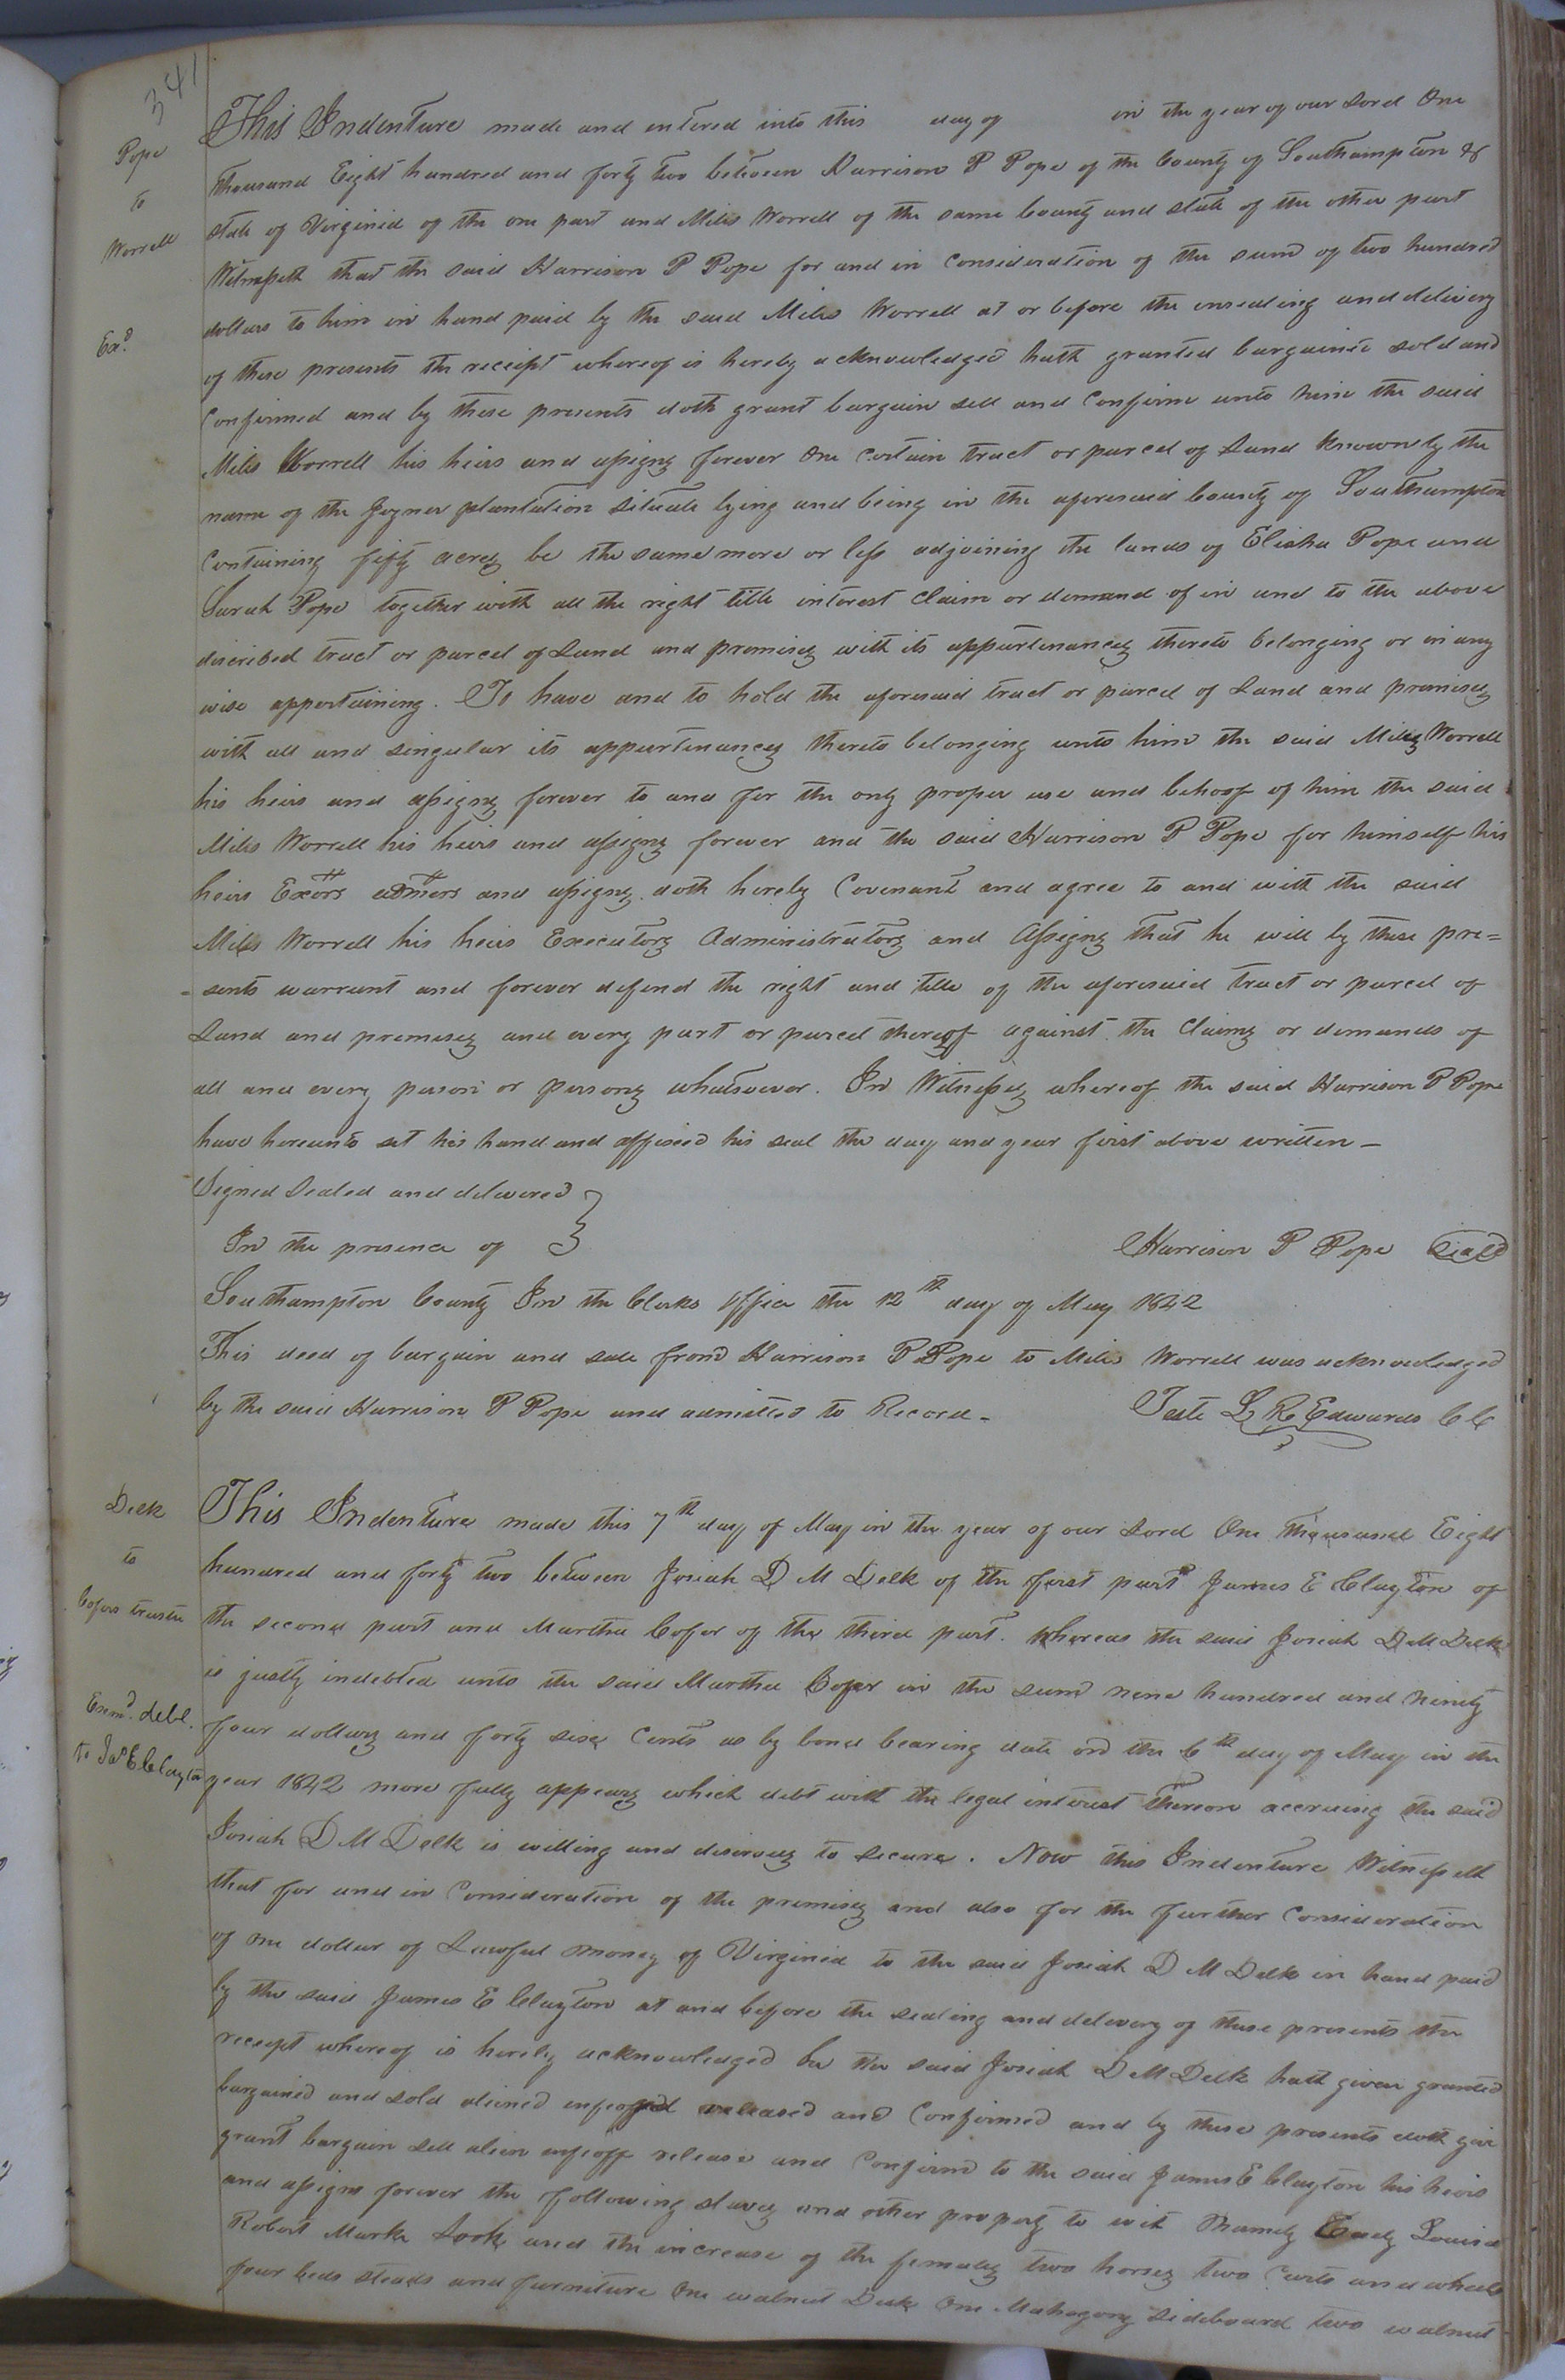 341
Pope
to
Worrell
Exd
This Indenture made and entered into this day of in the year of our Lord One
thousand Eight hundred and forty two between Harrison P Pope of the County of Southampton &
state of Virginia of the one part and Miles Worrell of the same County and state of the other part
Witnesseth that the said Harrison P Pope for and in Consideration of the sum of two hundred
dollars to him in hand paid by the said Miles Worrell at or before the ensealing and delivery
of these presents the receipt whereof is hereby acknowledged hath granted bargained sold and
Confirmed and by these presents doth grant bargain sell and Confirm unto him the said
Miles Worrell his heirs and assigns forever One Certain tract or parcel of Land known by the
name of the Joyner plantation situate lying and being in the aforesaid County of Southampton
Containing fifty acres be the same more or less adjoining the lands of Elisha Pope and
Sarah Pope together with all the right title interest Claim or demand of in and to the above
discribed tract or parcel of Land and premises with its appurtenances thereto belonging or in any
wise appertaining. To have and to hold the aforesaid tract or parcel of Land and premises
with all and singular its appurtenances thereto belonging unto him the said Miles Worrell
his heirs and assigns forever to and for the only proper use and behoof of him the said
Miles Worrell his heirs and assigns forever and the said Harrison P Pope for himself his
heirs Exors admors and assigns doth hereby Covenant and agree to and with the said
Miles Worrell his heirs Executors Administrators and Assigns that he will by these pre=
=sents warrant and forever defend the right and title of the aforesaid tract or parcel of
Land and premises and every part or parcel thereof against the Claims or demands of
all and every person or persons whatsoever. In Witness whereof the said Harrison P Pope
have hereunto set his hand and affixed his seal the day and year first above written –
Signed Sealed and delivered
In the presence of
Harrison P Pope Seal
Southampton County In the Clerks Office the 12th day of May 1842
This deed of bargain and sale from Harrison P Pope to Miles Worrell was acknowledged
by the said Harrison P Pope and admitted to Record –
Teste L R Edwards C C
Delk
to
Cofers trustee
Exmd. deld.
to Jas E Clayton
This Indenture made this 7th day of May in the year of our Lord One Thousand Eight
hundred and forty two between Josiah D M Delk of the first part James E Clayton of
the second part and Martha Cofer of the third part. Whereas the said Josiah D M Delk
is justly indebted unto the said Martha Cofer in the sum nine hundred and Ninety
four dollars and forty six Cents as by bond bearing date on the 6th day of May in the
year 1842 more fully appears which debt with the legal interest thereon accruing the said
Josiah D M Delk is willing and desirous to secure. Now this Indenture Witnesseth
that for and in Consideration of the premises and also for the further Consideration
of one dollar of Lawful money of Virginia to the said Josiah D M Delk in hand paid
by the said James E Clayton at and before the sealing and delivery of these presents the
receipt whereof is hereby acknowledged he the said Josiah D M Delk hath given granted
bargained and sold aliened enfeoffed released and Confirmed and by these presents doth give
grant bargain sell alien enfeoff release and Confirm to the said James E Clayton his heirs
and assigns forever the following slaves and other property to wit Louisa
Robert and the increase of the females two horses two Carts and wheels
four beds steads and furniture One walnut Desk One Mahogony sideboard two walnut